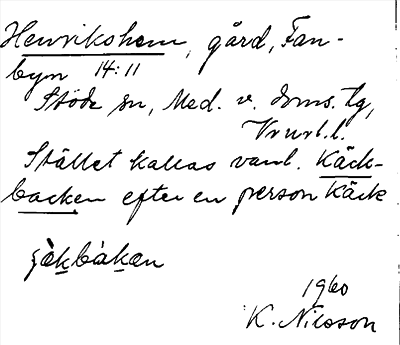 Henrikshem, gård, Fan-
byn 14:11
Stöde sn, Med. v. doms. tg,
Vrurl.l.
Stället kallas vanl. Käck-
backen efter en person Käck
ʂàkbàkæn
1960
K. Nilsson